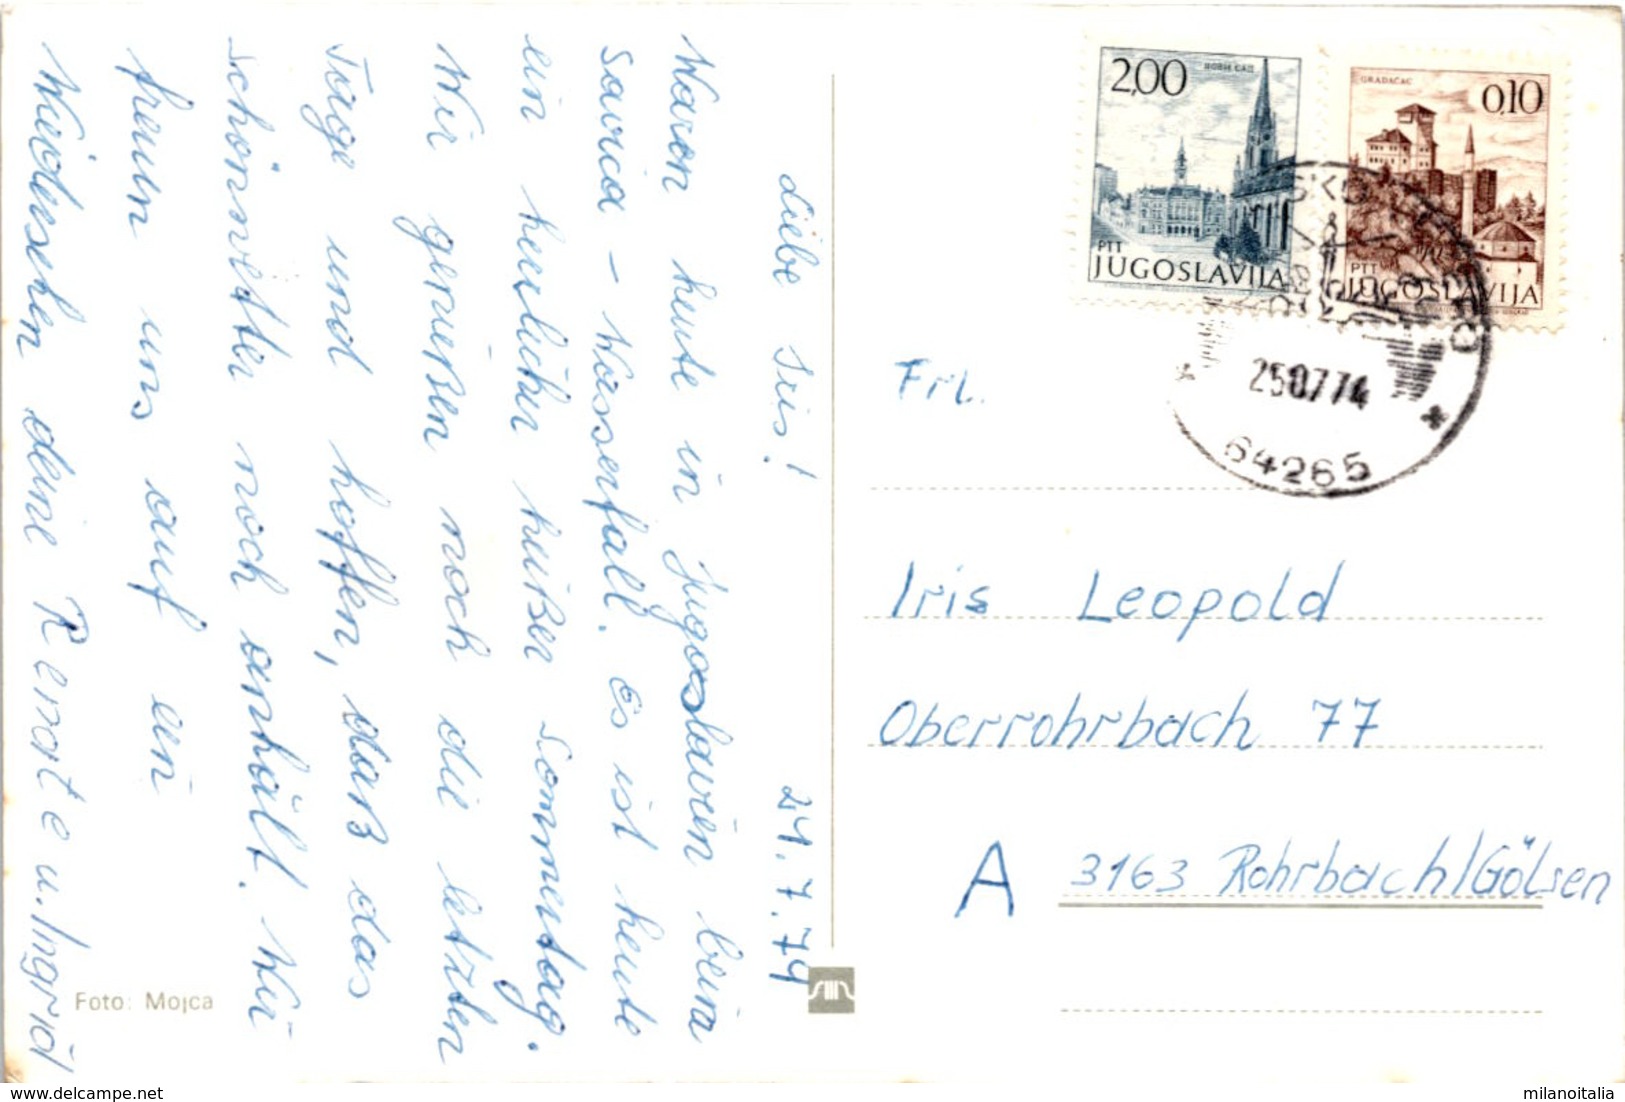 Liebe Iris! 24.7.74
Waren heute in Jugoslawien beim
Savica - Wasserfall. Es ist heute
ein herlicher heißer Sommertag.
Wir genießen noch die letzten
Tage und hoffen, daß das
schönwetter noch anhält. Wir
freuen uns auf ein
Wiedersehen deine Renate u. Ingrid
Foto: Mojca
2,00 НОВИ САД
PTT
JUGOSLAVIJA
GRADAČAC 0,10
PTT
JUGOSLAVIJA
25 07 74
64265
Frl.
Iris Leopold
Oberrohrbach 77
A 3163 Rohrbach/Gölsen
www.delcampe.net
milanoitalia